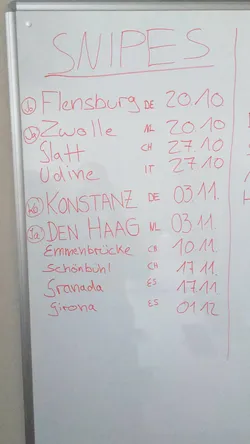 SNIPES
Flensburg DE 20.10
Zwolle NL 20.10
Glatt CH 27.10
Udine IT 27.10
KONSTANZ DE 03.11.
DEN HAAG NL 03.11.
Emmenbrücke CH 10.11.
Schönbühl CH 17.11.
Granada ES 17.11
Girona ES 01.12